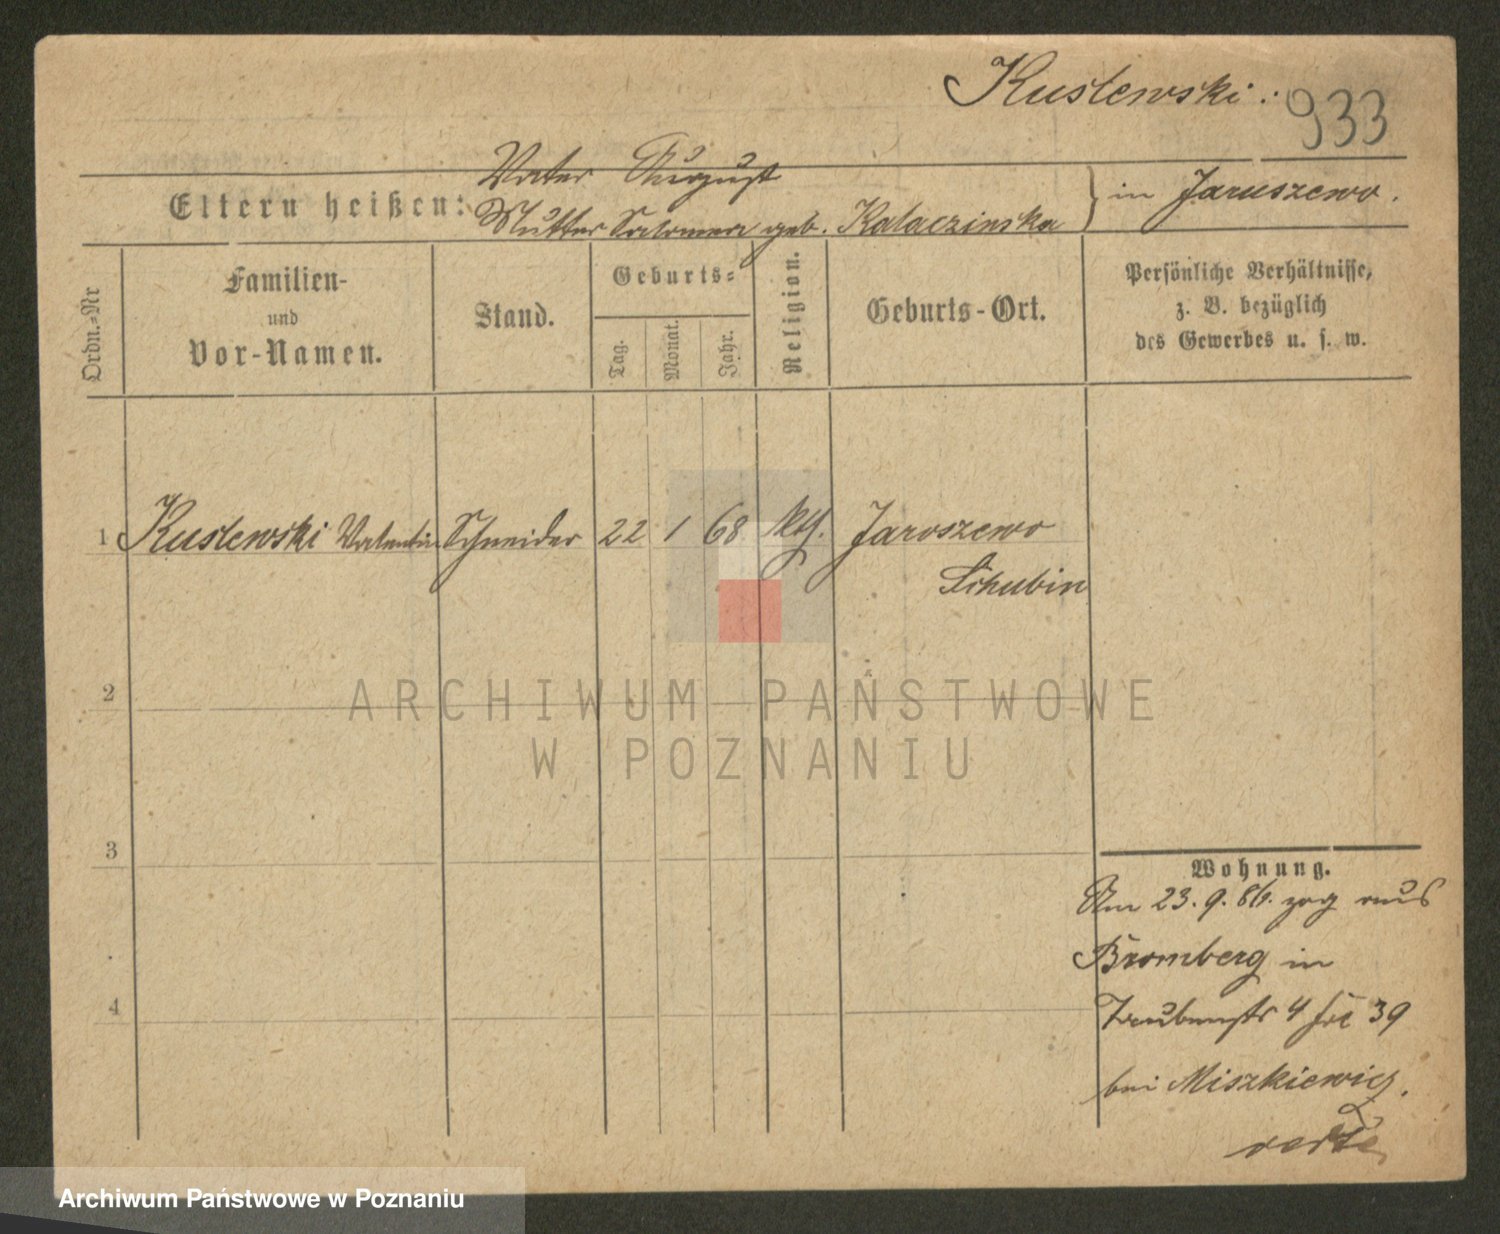 Kuslewski: 933
Vater August
Eltern heißen: Mutter Salomea geb. Kalaczinska } in Jaruszewo.
Ordn.-Nr
Familien-
und
Vor-Namen.
Stand.
Geburts-
Tag. Monat. Jahr.
Religion.
Geburts-Ort.
Persönliche Verhältnisse,
z. B. bezüglich
des Gewerbes u. s. w.
1 Kuslewski Valentin Schneider 22 1 68 kth. Jaroszewo
Schubin
2
3
4
Wohnung.
Am 23. 9. zog aus
Bromberg in
Taubenstr 4 39
bei Miszkiewicz.
verte
ARCHIWUM PAŃSTWOWE
W POZNANIU
Archiwum Państwowe w Poznaniu